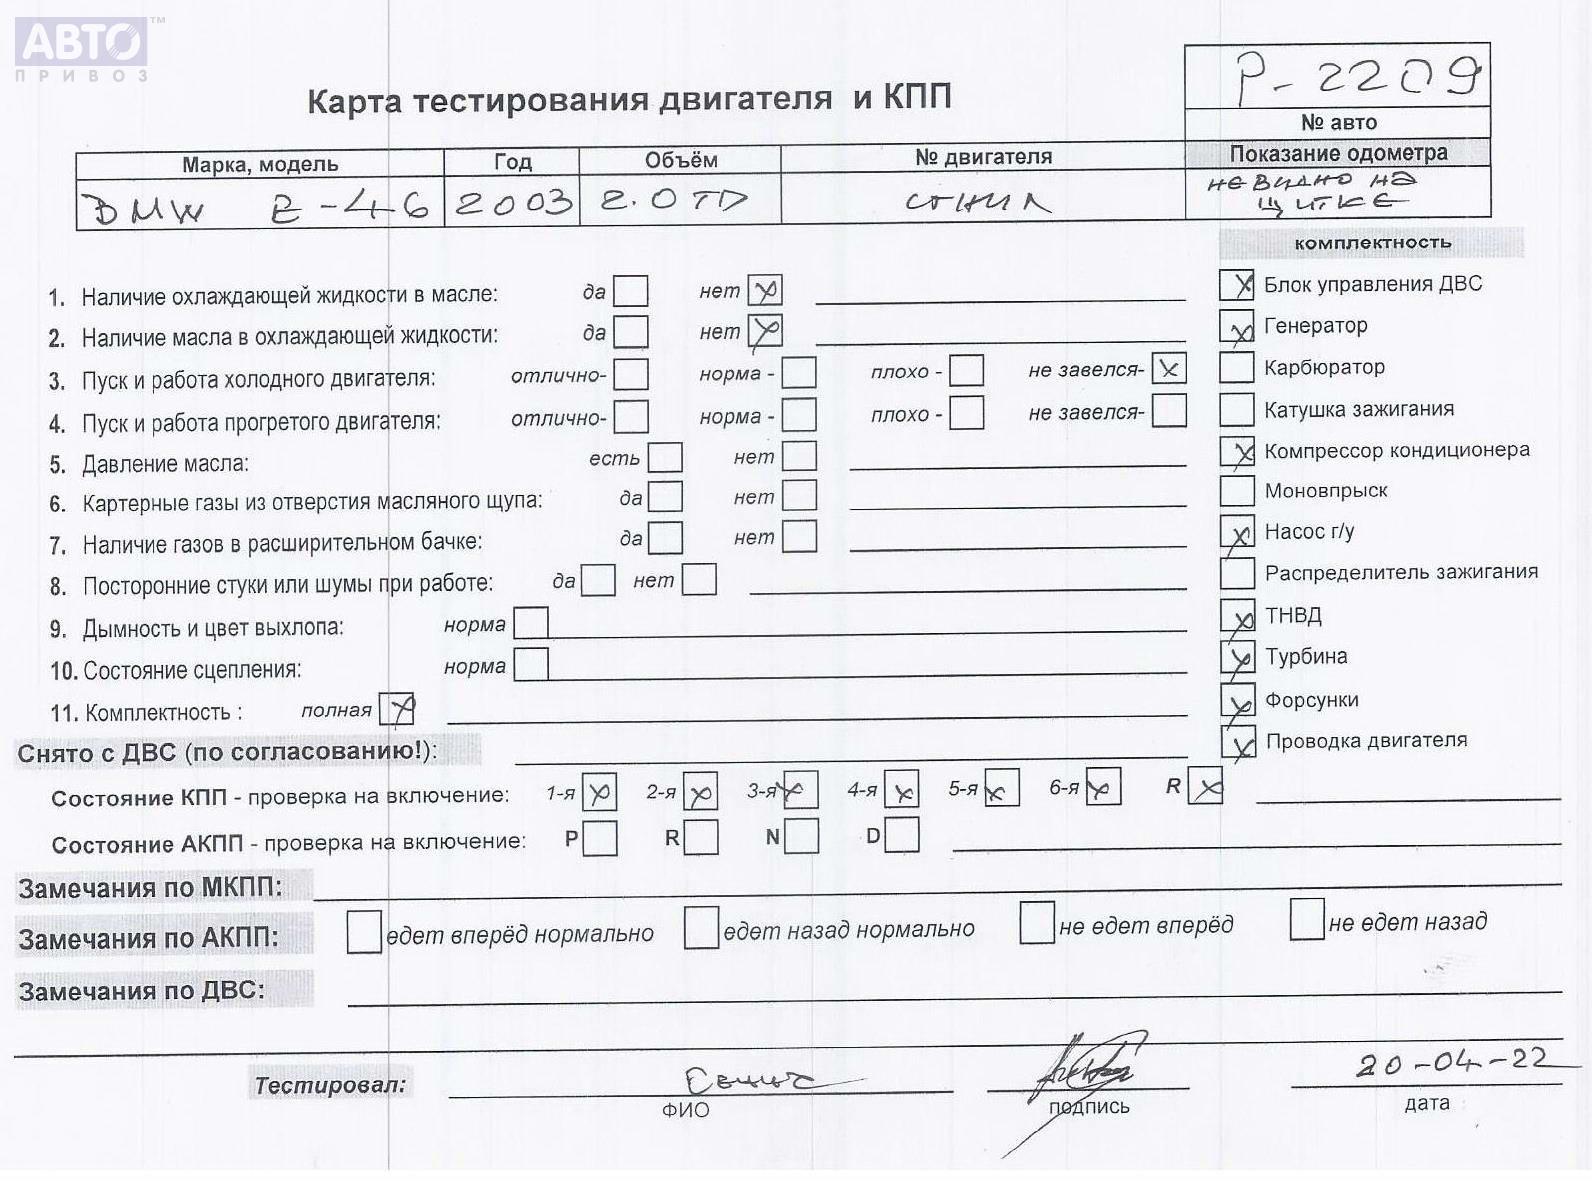 АВТО™
ПРИВОЗ
Р-2209
Карта тестирования двигателя и КПП
№ авто
Марка, модель Год Объём № двигателя Показание одометра
BMW E-46 2003 2.0 TD сгнил не видно на
щитке
комплектность
1. Наличие охлаждающей жидкости в масле: да нет
2. Наличие масла в охлаждающей жидкости: да нет
3. Пуск и работа холодного двигателя: отлично- норма - плохо - не завелся-
4. Пуск и работа прогретого двигателя: отлично- норма - плохо - не завелся-
5. Давление масла: есть нет
6. Картерные газы из отверстия масляного щупа: да нет
7. Наличие газов в расширительном бачке: да нет
8. Посторонние стуки или шумы при работе: да нет
9. Дымность и цвет выхлопа: норма
10. Состояние сцепления: норма
11. Комплектность : полная
Блок управления ДВС
Генератор
Карбюратор
Катушка зажигания
Компрессор кондиционера
Моновпрыск
Насос г/у
Распределитель зажигания
ТНВД
Турбина
Форсунки
Проводка двигателя
Снято с ДВС (по согласованию!):
Состояние КПП - проверка на включение: 1-я 2-я 3-я 4-я 5-я 6-я R
Состояние АКПП - проверка на включение: P R N D
Замечания по МКПП:
Замечания по АКПП: едет вперёд нормально едет назад нормально не едет вперёд не едет назад
Замечания по ДВС:
Тестировал: 20-04-22
ФИО подпись дата